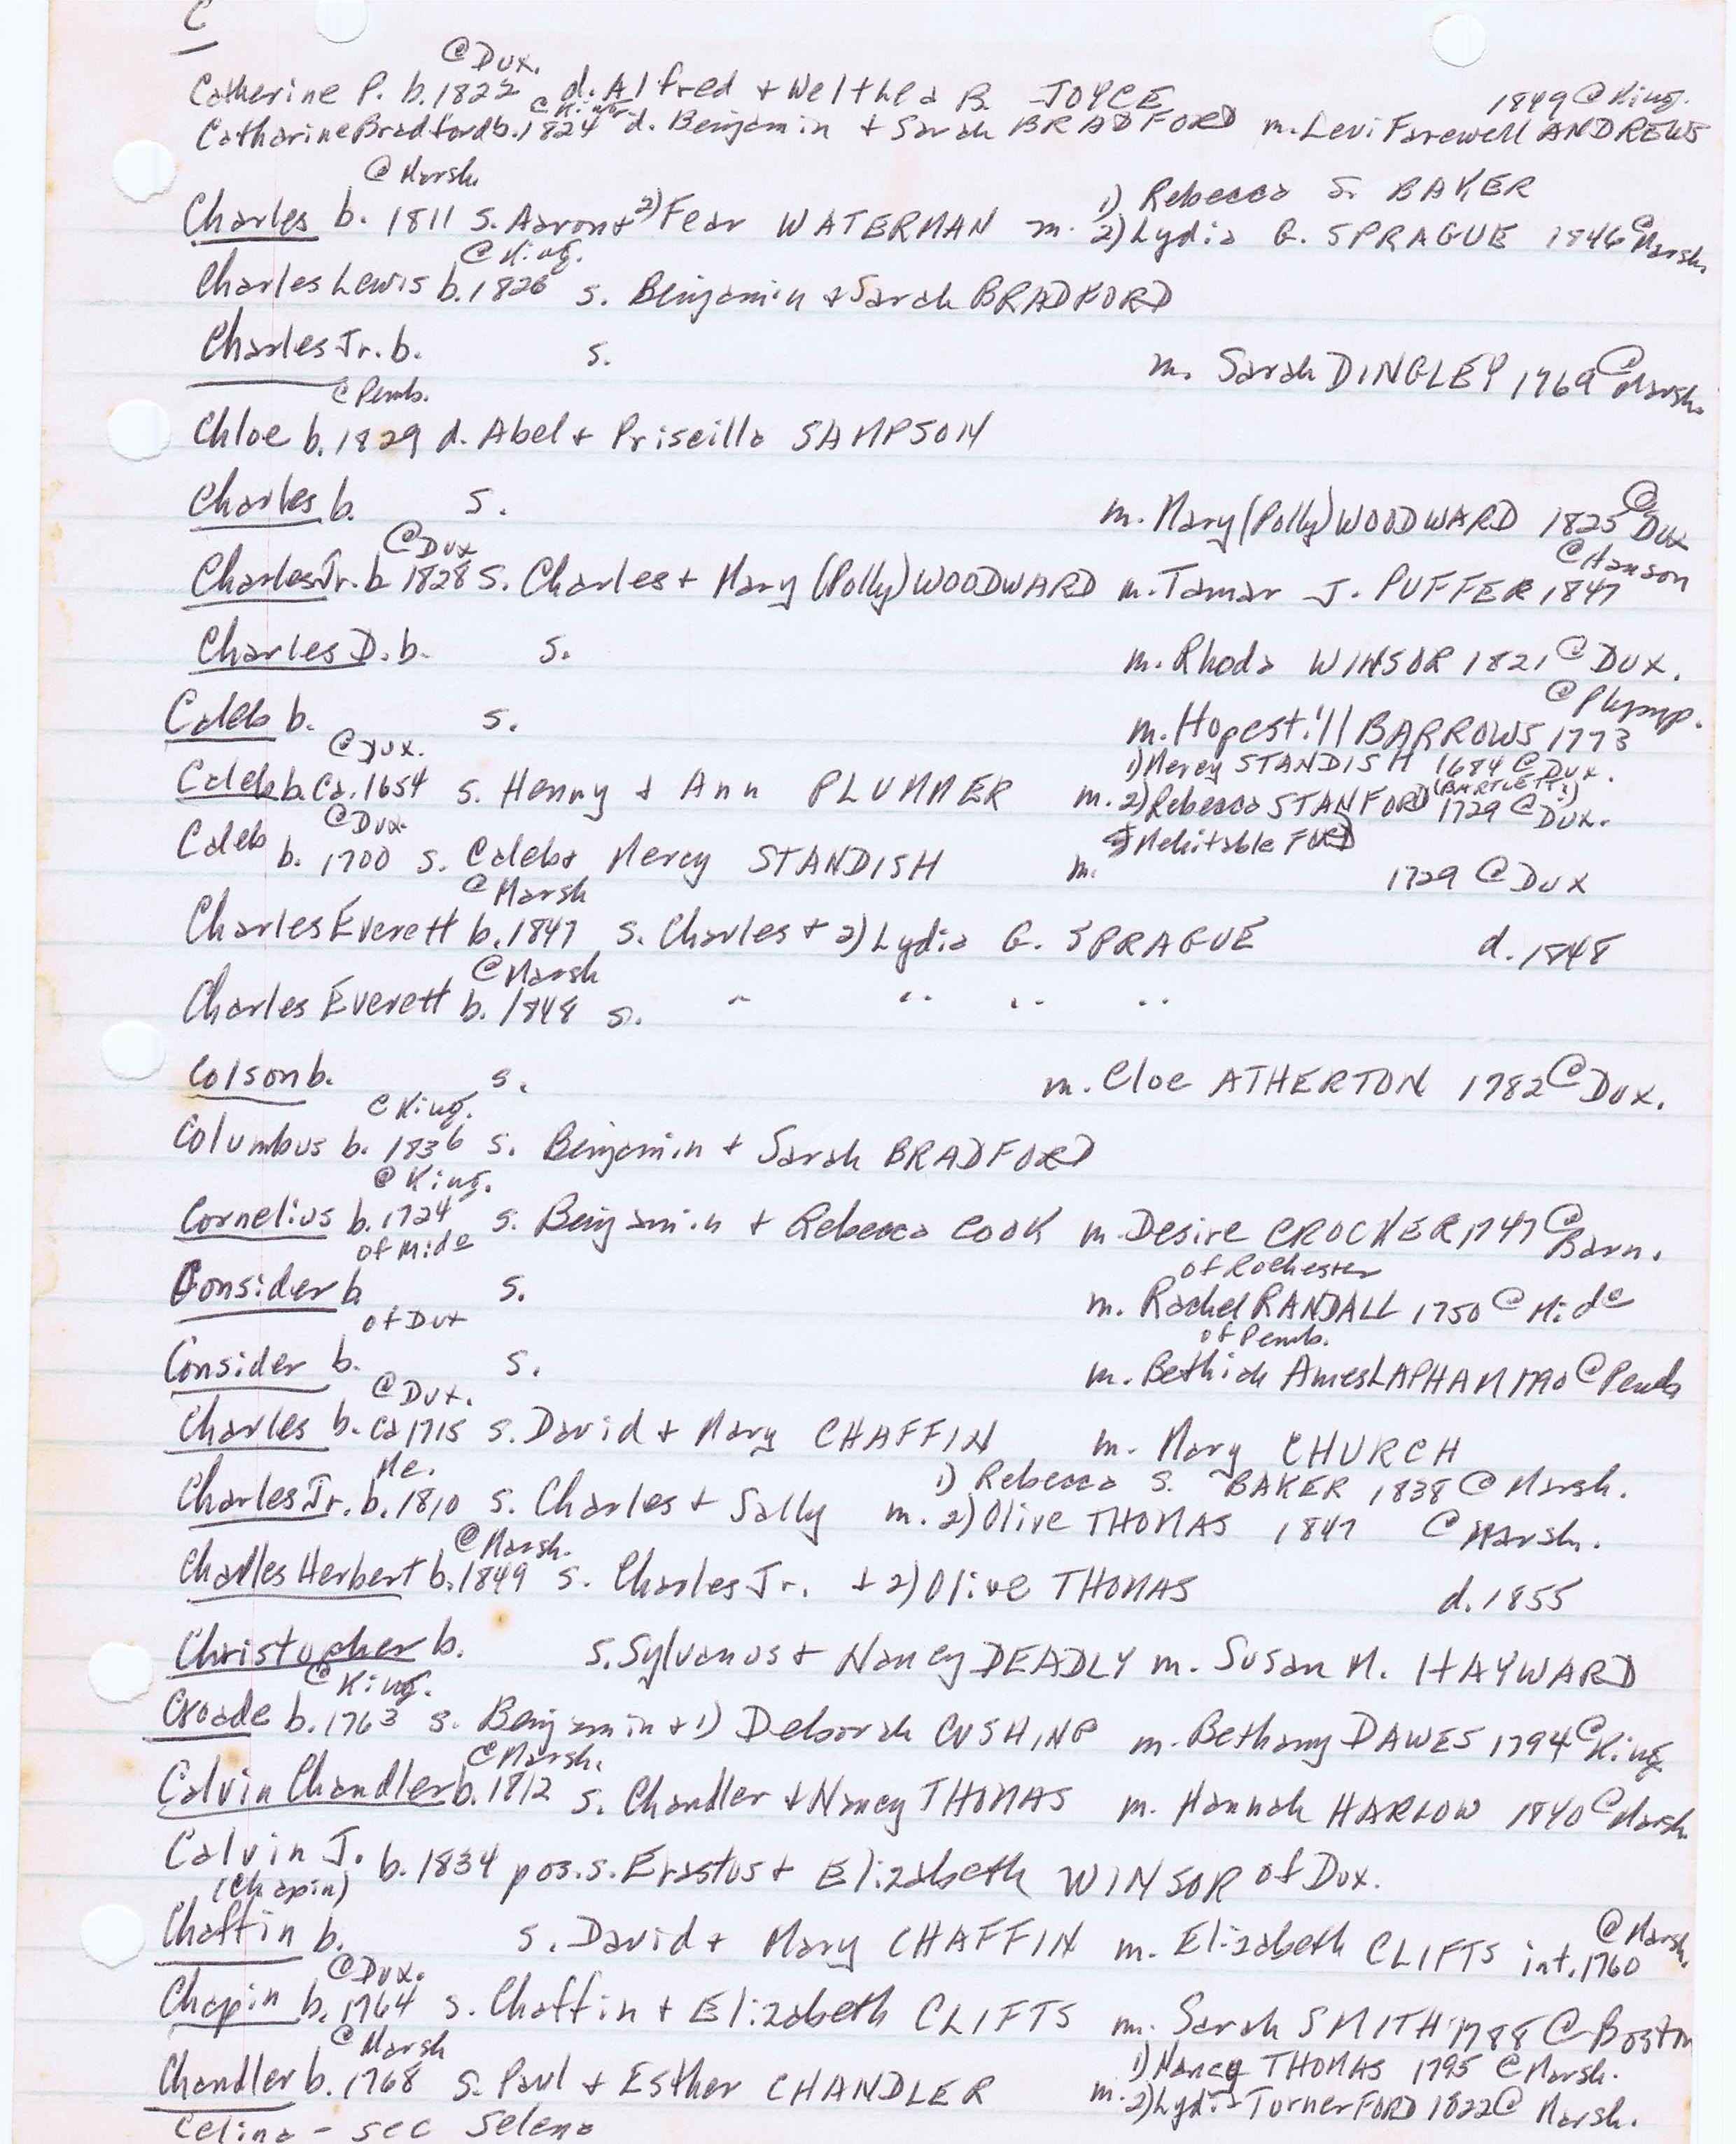 C
@Dux.
Catherine P. b. 1822 d. Alfred + Welthea B. JOYCE
1849 @ King.
Catharine Bradford b. 1824 d. Benjamin + Sarah BRADFORD m. Levi Farewell ANDREWS
@ Marsh.
1) Rebecca S. BAKER
Charles b. 1811 s. Aaron + 2) Fear WATERMAN m. 2) Lydia G. SPRAGUE 1846 @ Marsh.
@ King.
Charles Lewis b. 1826 s. Benjamin + Sarah BRADFORD
Charles Jr. b. s. m. Sarah DINGLEY 1769 @ Marsh.
@ Pemb.
Chloe b. 1829 d. Abel + Priscilla SAMPSON
Charles b. s. m. Mary (Polly) WOODWARD 1825 @ Dux
@Dux @Hanson
Charles Jr. b. 1828 s. Charles + Mary (Polly) WOODWARD m. Tamar J. PUFFER 1847
Charles D. b. s. m. Rhoda WINSOR 1821 @ Dux.
@ Plymp.
Caleb b. s. m. Hopestill BARROWS 1773
@Dux. 1) Mercy STANDISH 1684 @ Dux.
Caleb b. Ca. 1654 s. Henry + Ann PLUMMER m. 2) Rebecca STANFORD (BARTLETT?) 1729 @ Dux.
@Dux. Mehitable FORD
Caleb b. 1700 s. Caleb + Mercy STANDISH m. 1729 @ Dux
@ Marsh
Charles Everett b. 1847 s. Charles + 2) Lydia G. SPRAGUE d. 1848
@ Marsh
Charles Everett b. 1848 s. " " " "
Colson b. s. m. Cloe ATHERTON 1782 @ Dux.
@ King.
Columbus b. 1836 s. Benjamin + Sarah BRADFORD
@ King.
Cornelius b. 1724 s. Benjamin + Rebecca COOK m. Desire CROCKER 1747 @ Barn.
of Mide of Rochester
Consider b. s. m. Rachel RANDALL 1750 @ Mide
of Dux of Pemb.
Consider b. s. m. Bethiah Ames LAPHAM 1790 @ Pemb
@ Dux.
Charles b. Ca 1715 s. David + Mary CHAFFIN m. Mary CHURCH
Me. 1) Rebecca S. BAKER 1838 @ Marsh.
Charles Jr. b. 1810 s. Charles + Sally m. 2) Olive THOMAS 1847 @ Marsh.
@ Marsh.
Charles Herbert b. 1849 s. Charles Jr. + 2) Olive THOMAS d. 1855
Christopher b. s. Sylvanus + Nancy DEADLY m. Susan M. HAYWARD
@ King.
Croade b. 1763 s. Benjamin + 1) Deborah CUSHING m. Bethany DAWES 1794 @ King
@ Marsh.
Calvin Chandler b. 1812 s. Chandler + Nancy THOMAS m. Hannah HARLOW 1840 @ Marsh.
Calvin J. b. 1834 pos. s. Erastus + Elizabeth WINSOR of Dux.
(Chapin)
@ Marsh.
Chaffin b. s. David + Mary CHAFFIN m. Elizabeth CLIFTS int. 1760
@ Dux.
Chapin b. 1764 s. Chaffin + Elizabeth CLIFTS m. Sarah SMITH 1788 @ Boston
@ Marsh 1) Nancy THOMAS 1795 @ Marsh.
Chandler b. 1768 s. Paul + Esther CHANDLER m. 2) Lydia Turner FORD 1822 @ Marsh.
Celina - see Selena